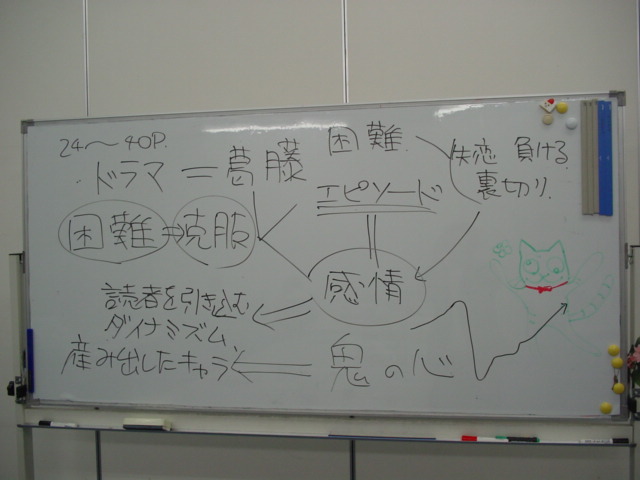 24〜40P.
ドラマ = 葛藤
困難
失恋 負ける
裏切り
エピソード
困難 ⇒ 克服
感情
読者を引き込む
ダイナミズム、
産み出したキャラ
鬼の心